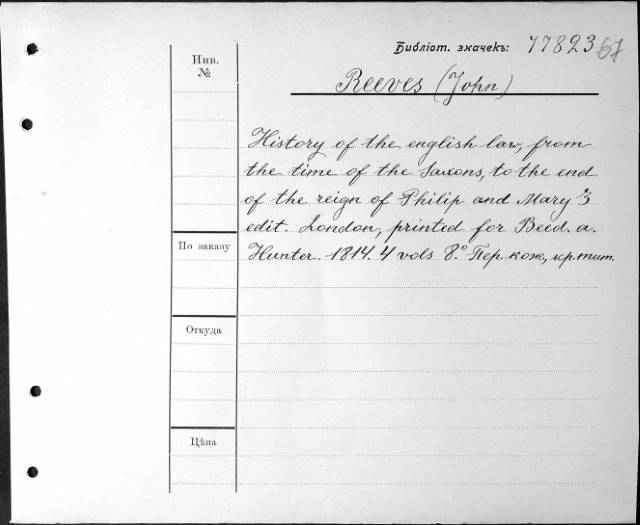 Библіот. значекъ: 77823
Инв.
№
Reeves (John)
History of the english law, from
the time of the Saxons, to the end
of the reign of Philip and Mary 3
edit. London, printed for Reed. a.
По заказу
Hunter. 1814. 4 vols 8.° Пер. кож., кр. тит.
Откуда
Цѣна